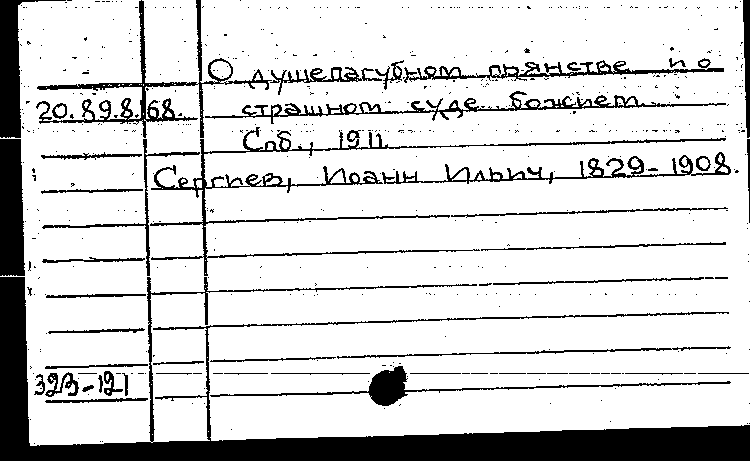 О душепагубном пьянстве по
20.89.8.168. страшном суде божием
Спб., 1911.
Сергиев, Иоанн Ильич, 1829-1908.
323-121